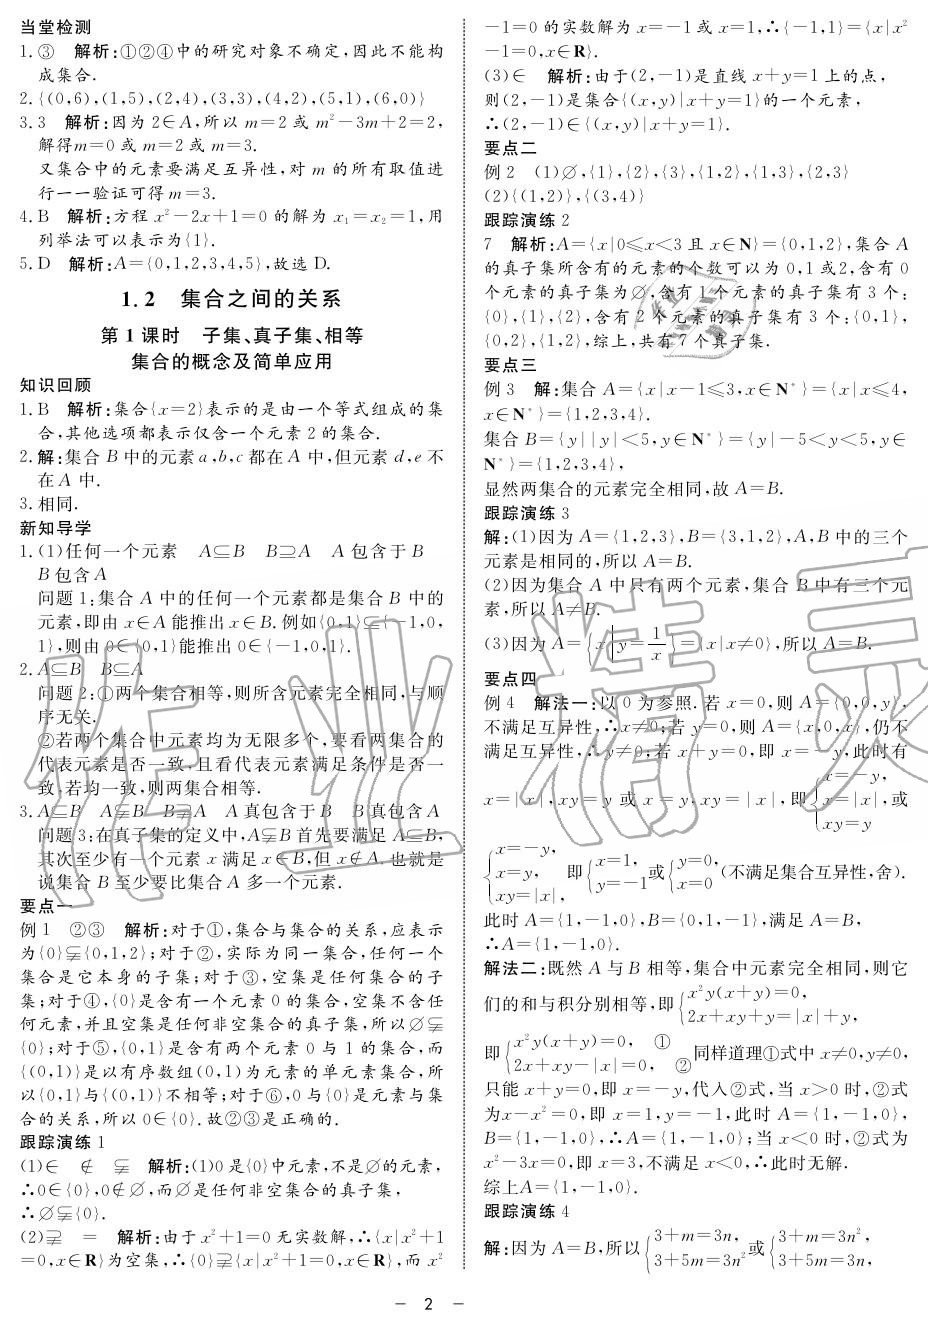 当堂检测
1.③　解析:①②④中的研究对象不确定,因此不能构
成集合.
2.{(0,6),(1,5),(2,4),(3,3),(4,2),(5,1),(6,0)}
3.3　解析:因为2∈A,所以m=2或m²-3m+2=2,
解得m=0或m=2或m=3.
又集合中的元素要满足互异性,对m的所有取值进
行一一验证可得m=3.
4.B　解析:方程x²-2x+1=0的解为x₁=x₂=1,用
列举法可以表示为{1}.
5.D　解析:A={0,1,2,3,4,5},故选D.
1.2　集合之间的关系
第1课时　子集、真子集、相等
集合的概念及简单应用
知识回顾
1.B　解析:集合{x=2}表示的是由一个等式组成的集
合,其他选项都表示仅含一个元素2的集合.
2.解:集合B中的元素a,b,c都在A中,但元素d,e不
在A中.
3.相同.
新知导学
1.(1)任何一个元素　A⊆B　B⊇A　A包含于B
B包含A
问题1:集合A中的任何一个元素都是集合B中的
元素,即由x∈A能推出x∈B.例如{0,1}⊆{-1,0,
1},则由0∈{0,1}能推出0∈{-1,0,1}.
2.A⊆B　B⊆A
问题2:①两个集合相等,则所含元素完全相同,与顺
序无关.
②若两个集合中元素均为无限多个,要看两集合的
代表元素是否一致,且看代表元素满足条件是否一
致,若均一致,则两集合相等.
3.A⊆B　A⫋B　B⫌A　A真包含于B　B真包含A
问题3:在真子集的定义中,A⫋B首先要满足A⊆B,
其次至少有一个元素x满足x∈B,但x∉A.也就是
说集合B至少要比集合A多一个元素.
要点一
例1　②③　解析:对于①,集合与集合的关系,应表示
为{0}⫋{0,1,2};对于②,实际为同一集合,任何一个
集合是它本身的子集;对于③,空集是任何集合的子
集;对于④,{0}是含有一个元素0的集合,空集不含任
何元素,并且空集是任何非空集合的真子集,所以∅⫋
{0};对于⑤,{0,1}是含有两个元素0与1的集合,而
{(0,1)}是以有序数组(0,1)为元素的单元素集合,所
以{0,1}与{(0,1)}不相等;对于⑥,0与{0}是元素与集
合的关系,所以0∈{0}.故②③是正确的.
跟踪演练1
(1)∈　∉　⫋　解析:(1)0是{0}中元素,不是∅的元素,
∴0∈{0},0∉∅,而∅是任何非空集合的真子集,
∴∅⫋{0}.
(2)⫌　=　解析:由于x²+1=0无实数解,∴{x|x²+1
=0,x∈R}为空集,∴{0}⫌{x|x²+1=0,x∈R},而x²
-1=0的实数解为x=-1或x=1,∴{-1,1}={x|x²
-1=0,x∈R}.
(3)∈　解析:由于(2,-1)是直线x+y=1上的点,
则(2,-1)是集合{(x,y)|x+y=1}的一个元素,
∴(2,-1)∈{(x,y)|x+y=1}.
要点二
例2　(1)∅,{1},{2},{3},{1,2},{1,3},{2,3}
(2){(1,2)},{(3,4)}
跟踪演练2
7　解析:A={x|0≤x<3且x∈N}={0,1,2},集合A
的真子集所含有的元素的个数可以为0,1或2,含有0
个元素的真子集为∅,含有1个元素的真子集有3个:
{0},{1},{2},含有2个元素的真子集有3个:{0,1},
{0,2},{1,2},综上,共有7个真子集.
要点三
例3　解:集合A={x|x-1≤3,x∈N*}={x|x≤4,
x∈N*}={1,2,3,4}.
集合B={y||y|<5,y∈N*}={y|-5<y<5,y∈
N*}={1,2,3,4},
显然两集合的元素完全相同,故A=B.
跟踪演练3
解:(1)因为A={1,2,3},B={3,1,2},A,B中的三个
元素是相同的,所以A=B.
(2)因为集合A中只有两个元素,集合B中有三个元
素,所以A≠B.
(3)因为A={x|y=1/x}={x|x≠0},所以A=B.
要点四
例4　解法一:以0为参照.若x=0,则A={0,0,y},
不满足互异性,∴x≠0;若y=0,则A={x,0,x},仍不
满足互异性,∴y≠0;若x+y=0,即x=-y,此时有
x=|x|,xy=y或x=y,xy=|x|,即{x=-y, x=|x|, xy=y 或
{x=-y, x=y, xy=|x|, 即{x=1, y=-1 或{y=0, x=0 (不满足集合互异性,舍).
此时A={1,-1,0},B={0,1,-1},满足A=B,
∴A={1,-1,0}.
解法二:既然A与B相等,集合中元素完全相同,则它
们的和与积分别相等,即{x²y(x+y)=0, 2x+xy+y=|x|+y,
即{x²y(x+y)=0,　① 2x+xy-|x|=0,　② 同样道理①式中x≠0,y≠0,
只能x+y=0,即x=-y,代入②式,当x>0时,②式
为x-x²=0,即x=1,y=-1,此时A={1,-1,0},
B={1,-1,0},∴A={1,-1,0};当x<0时,②式为
x²-3x=0,即x=3,不满足x<0,∴此时无解.
综上A={1,-1,0}.
跟踪演练4
解:因为A=B,所以{3+m=3n, 3+5m=3n² 或{3+m=3n², 3+5m=3n,
- 2 -
作业精灵